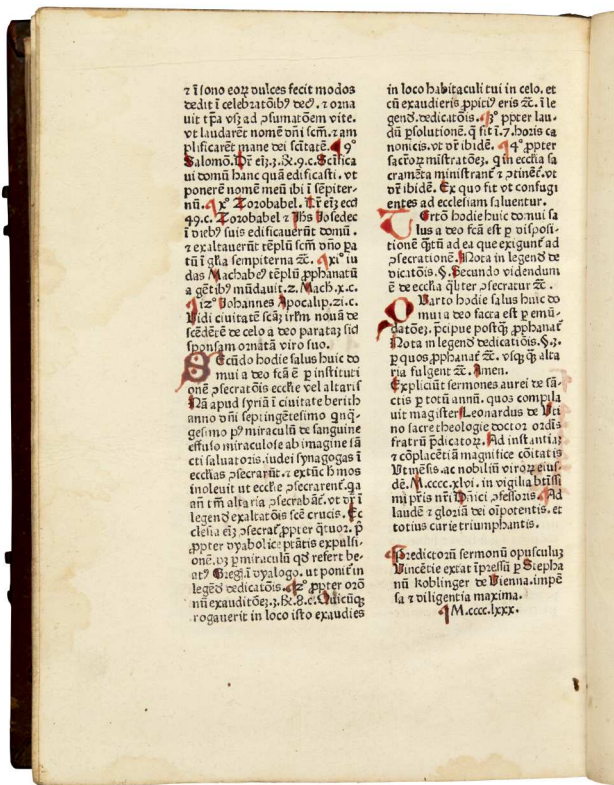 ⁊ ī ſono eoꝝ dulces fecit modos
dedit ī celebꝛatōībꝰ decꝰ. ⁊ oꝛna
uit tꝑa vſqꝫ ad ↄſumatōem vite.
vt laudarēt nomē dn̄i ſcm̄. ⁊ am
plificarēt mane dei ſc̄itatē. ¶ 9º
Salomō. Dr̄ eiꝫ.3.Re.9.c. Sc̄ifica
ui domū hanc quā edificaſti. vt
ponerē nomē meū ibi ī ſēpiter-
nū. ¶ xº Zoꝛobabel. Dr̄ eiꝫ eccī
49.c. Zoꝛobabel ⁊ Jhs Joſedec
ī diebꝰ ſuis edificauerūt domū.
⁊ exaltauerūt tēplū ſcm̄ dn̄o pa
tū ī gl̄ia ſempiterna ⁊c̄. ¶ xiº iu
das Machabeꝰ tēplū ꝓphanatū
a gētibꝰ mūdauit.2.Mach.x.c.
¶ 12º Johannes Apocalip.21.c.
Vidi ciuitatē ſcāꝫ irl̄m nouā de
ſcēdētē de celo a deo parataꝫ ſic̄
ſponſam oꝛnatā viro ſuo.
SEcūdo hodie ſalus huic do
mui a deo fcā ē ꝑ inſtituti
onē ↄſecratōis eccīe vel altaris
Nā apud ſyriā ī ciuitate berith
anno dn̄i ſeptingēteſimo qnq̄-
geſimo pꝰ miraculū de ſanguine
effuſo miraculoſe ab imagine ſā
cti ſaluatoꝛis. iudei ſynagogas ī
eccīias ↄſecrarūt. ⁊ extūc h̄ mos
inoleuit ut eccīie ↄſecrarent̄. qa
an̄ tm̄ altaria ↄſecrabāt̄. vt dr̄ ī
legen̄ exaltatōis ſcē crucis. Ec
cleſia eiꝫ ↄſecrat̄ ꝓpter qtuoꝛ. p̄
ꝓpter dyabolice ptātis expulſi-
onē. vꝫ ꝑ miraculū qd̄ refert be-
atꝰ Greg. ī dyalogo. ut ponit̄ in
legēd̄ dedicatōis. ¶ 2º ꝓpter oꝛō
nū exauditōeꝫ.3.Re.8.c. Quicūqꝫ
rogauerit in loco iſto exaudies
in loco habitaculi tui in celo. et
cū exaudieris ꝓpiciꝰ eris ⁊c̄. ī le
gend̄. dedicatōis. ¶ 3º ꝓpter lau-
dū ꝑſolutionē. q̄ ſit ī.7.hoꝛis ca
nonicis. vt dr̄ ibidē. ¶ 4º ꝓpter
ſacroꝝ miſtratōeꝫ. q̄ in eccīia ſa
cramēta miniſtrant̄ ⁊ ↄtinēt̄. vt
dr̄ ibidē. Ex quo fit vt confugi
entes ad eccleſiam ſaluentur.
TErtō hodie huic domui ſa
lus a deo fcā eſt ꝑ diſpoſi-
tionē q̄tū ad ea que exigunt̄ ad
ↄſecrationē. Nota in legend̄ de
dicatōis.§. Secundo videndum
ē de eccīia qlr̄ ↄſecratur ⁊c̄.
QUarto hodie ſalus huic do
mui a deo facta eſt ꝑ emū-
datōeꝫ. p̄cipue poſtq̄ꝫ ꝓphanat̄
Nota in legend̄ dedicatiōis.§.3.
ꝑ quos ꝓphanat̄ ⁊c̄. vſqꝫ q̄ alta
ria fulgent ⁊c̄. Amen.
Expliciūt ſermones aurei de ſā-
ctis ꝑ totū annū. quos compila
uit magiſter Leonardus de Uti
no ſacre theologie doctoꝛ oꝛdīs
fratrū p̄dicatoꝝ. Ad inſtantiaꝫ
⁊ cōplacētiā magnifice cōitatis
Utinēſis. ac nobiliū viroꝝ eiuſ-
dē. M.cccc.xlvi. in vigilia btīſſi
mi pr̄is nr̄i Dn̄ici ↄfeſſoꝛis. Ad
laudē ⁊ gloꝛiā dei oīpotentis. et
totius curie triumphantis.
Predictoꝛū ſermonū opuſculuꝫ
Uincētie extat īpreſſū ꝑ Stepha
nū koblinger de Uienna. impē
ſa ⁊ diligentia maxima.
¶ M.cccc.lxxx.